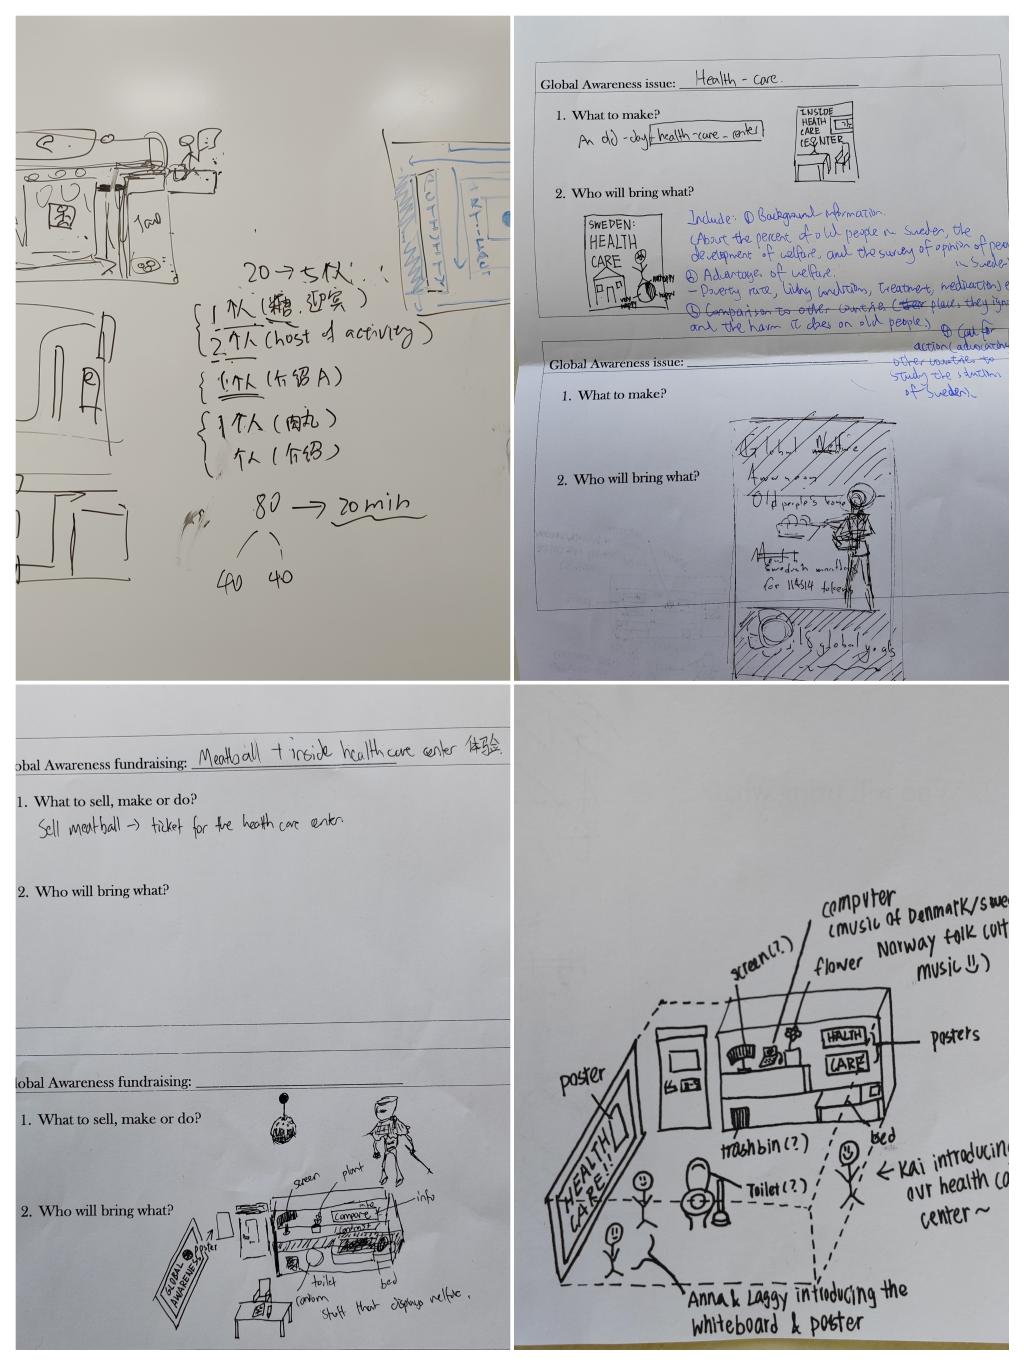 1个人(糖,迎宾)
2个人(host of activity)
1个人(介绍A)
1个人(肉丸)
个人(介绍)
80 → 20min
40 40
Global Awareness issue: Health-care.
1. What to make?
An old-day health-care-center
INSIDE
HEATH
CARE
CENTER
2. Who will bring what?
SWEDEN:
HEALTH
CARE
Include: ① Background information.
(About the percent of old people in Sweden, the
development of welfare, and the survey of opinion of
in Sweden
② Advantages of welfare:
- Poverty rate, living condition, treatment, medication
③ Comparison to other countries place, they
and the harm it does on old people)
④ Call for
action (advocating
other countries to
study the
of Sweden).
Global Awareness issue:
1. What to make?
2. Who will bring what?
Global
Old people's home
Swedish
for 114514 tokens
global goals
obal Awareness fundraising: Meatball + inside health care center 体验
1. What to sell, make or do?
Sell meatball → ticket for the health care center.
2. Who will bring what?
lobal Awareness fundraising:
1. What to sell, make or do?
2. Who will bring what?
screen
plant
info
compare +
contrast
poster
GLOBAL
AWARENESS
toilet
bed
random
stuff that displays welfare.
computer
(music of Denmark/swe
Norway folk cult
music)
screen(?)
flower
HALTH
CARE
posters
poster
HEALTH
CARE!!!
trashbin(?)
bed
Toilet(?)
← Kai introducing
our health ca
center~
Anna & Laggy introducing the
whiteboard & poster